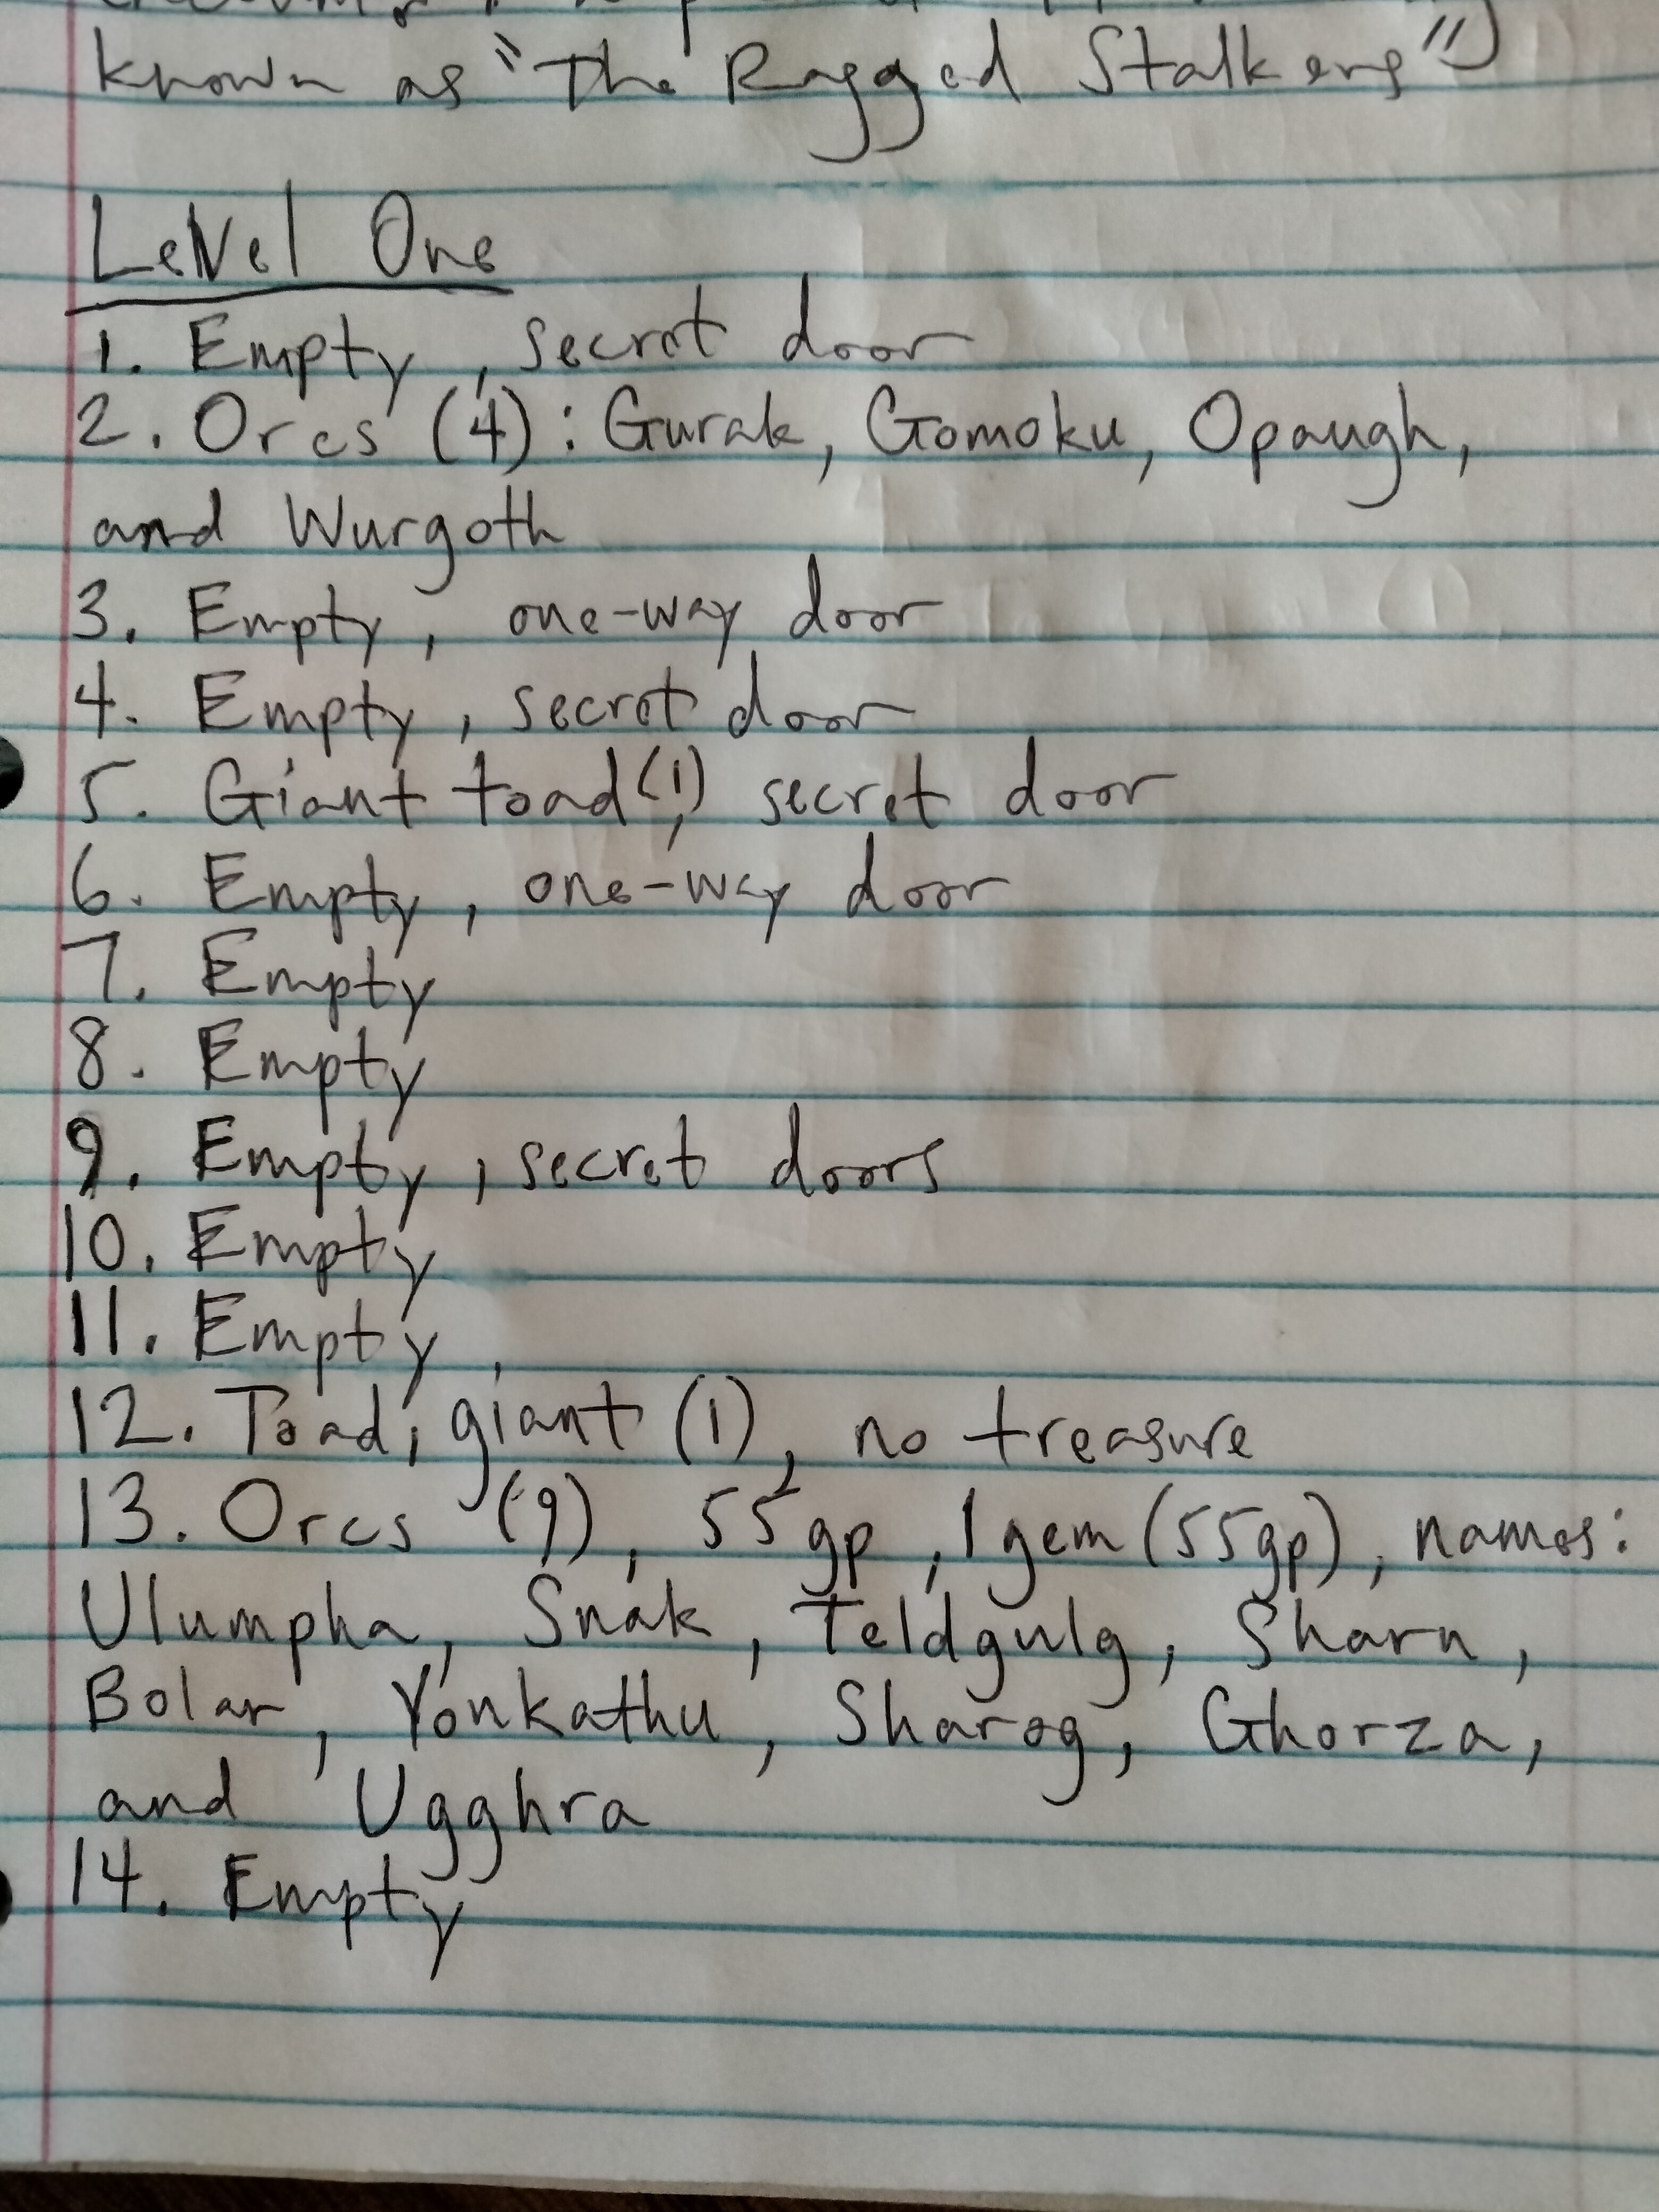 known as "The Ragged Stalkers")
Level One
1. Empty, secret door
2. Orcs (4): Gurak, Gomoku, Opaugh,
and Wurgoth
3. Empty, one-way door
4. Empty, secret door
5. Giant toad (1), secret door
6. Empty, one-way door
7. Empty
8. Empty
9. Empty, secret doors
10. Empty
11. Empty
12. Toad, giant (1), no treasure
13. Orcs (9), 55 gp, 1 gem (55gp), names:
Ulumpha, Snak, Teldgulg, Sharn,
Bolar, Yonkathu, Sharog, Ghorza,
and Ugghra
14. Empty